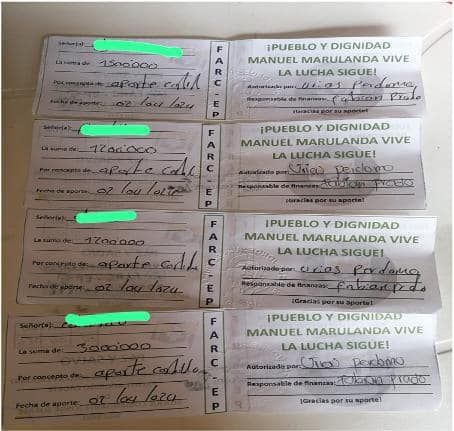 Señor(a):
La suma de: 1500'000
Por concepto de: aporte
Fecha de aporte: 02/04/024
FARC-EP
¡PUEBLO Y DIGNIDAD
MANUEL MARULANDA VIVE
LA LUCHA SIGUE!
Autorizado por: Urias Perdomo
Responsable de finanzas: Fabian Prado
¡Gracias por su aporte!
Señor(a):
La suma de: 1200'000
Por concepto de: aporte
Fecha de aporte: 02/04/024
FARC-EP
¡PUEBLO Y DIGNIDAD
MANUEL MARULANDA VIVE
LA LUCHA SIGUE!
Autorizado por: Urias Perdomo
Responsable de finanzas: Fabian Prado
¡Gracias por su aporte!
Señor(a):
La suma de: 1200'000
Por concepto de: aporte
Fecha de aporte: 02/04/024
FARC-EP
¡PUEBLO Y DIGNIDAD
MANUEL MARULANDA VIVE
LA LUCHA SIGUE!
Autorizado por: Urias Perdomo
Responsable de finanzas: Fabian Prado
¡Gracias por su aporte!
Señor(a):
La suma de: 3000'000
Por concepto de: aporte
Fecha de aporte: 02/04/024
FARC-EP
¡PUEBLO Y DIGNIDAD
MANUEL MARULANDA VIVE
LA LUCHA SIGUE!
Autorizado por: Urias Perdomo
Responsable de finanzas: Fabian Prado
¡Gracias por su aporte!